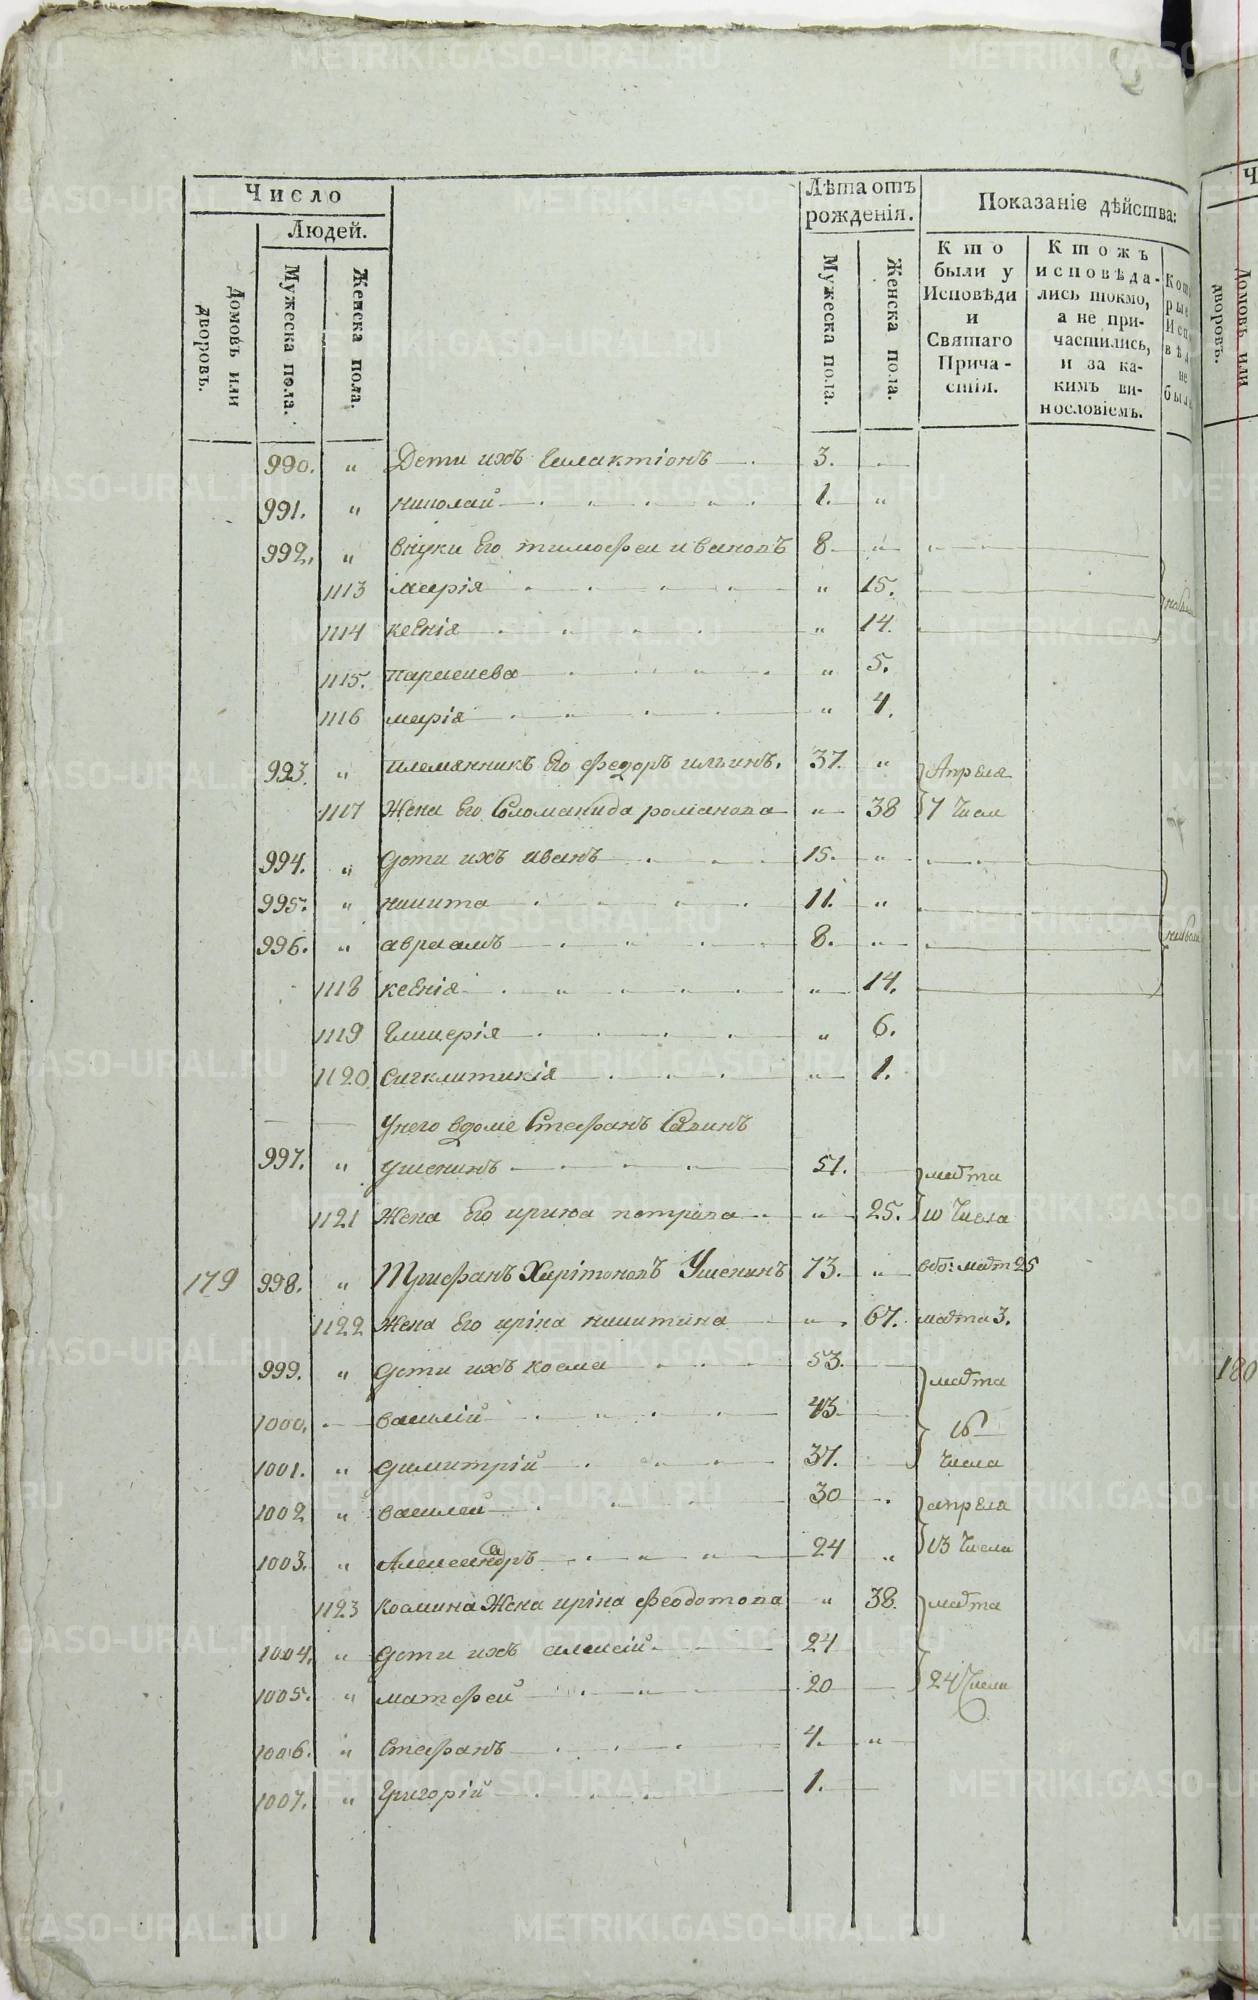 Число
Людей.
Домовъ или дворовъ.
Мужеска пола.
Женска пола.
Лѣта отъ рожденія.
Мужеска пола.
Женска пола.
Показаніе дѣйства:
Кто были у Исповѣди и Святаго Причастія.
Ктожъ исповѣдались токмо, а не причастились, и за какимъ винословіемъ.
990. " Дети ихъ Галактіонъ 3.
991. " николай 1. "
992. " внуки Его тимофеи ивановъ 8 "
1113 марія " 15.
1114 ксенія " 14.
1115. параскева " 5.
1116 марія " 4.
993. " племянникъ Его Федоръ ильинъ. 37. " Апреля
1117 Жена Его Соломанида романова " 38 7 Числа
994. " дети ихъ иванъ 15. "
995. " никита 11. "
996. " авраамъ 8. "
1118 ксенія " 14.
1119 Гликерія " 6.
1120 сигклитикія " 1.
Унего вдоме Стефанъ Савинъ
997. " ушенинъ 51. марта
1121 Жена Его ирина петрова " 25. 10 Числа
179 998. " Трифанъ Харітоновъ Ушенинъ 73. " март 25
1122 Жена Его іріна никитина " 67. марта 3.
999. " дети ихъ косма 53. марта
1000. василій 43. 16
1001. " димитрій 37. Числа
1002 " василей 30 апреля
1003. " Александръ 24 " 13 Числа
1123 космина Жена іріна Феодотова " 38. марта
1004. " дети ихъ алексій 24
1005. " матфей 20 24 Числа
1006. " Стефанъ 4. "
1007. " Григорій 1.
180
METRIKI.GASO-URAL.RU